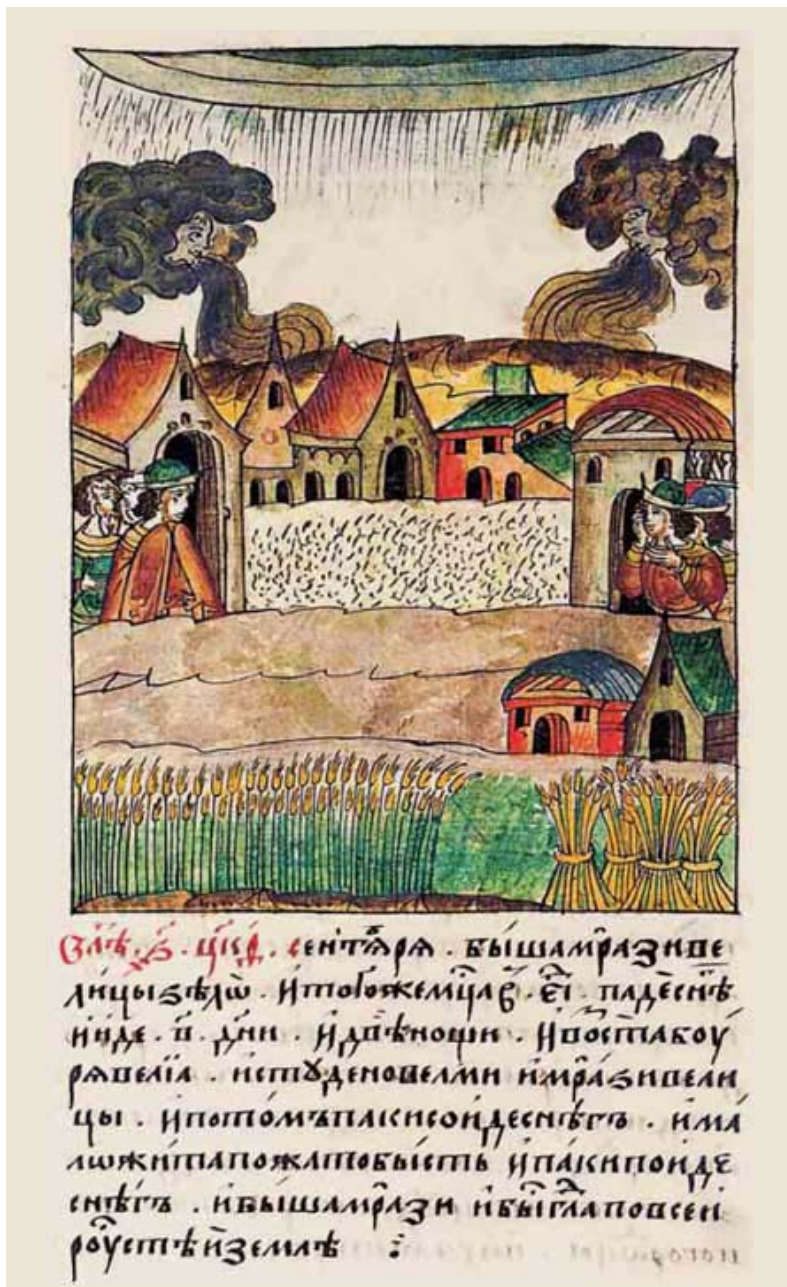 сентѧбрѧ . бы́шамрⷭ҇азиве
ли́цызѣлѡ̀ . и҆тогѡжемцⷭ҇а в҃ . є҃і . паде́снѣⷢ҇
и҆и́де . в҃ . дн҃и . и҆двѣ́нощи . и҆воста̀боу́
рѧвелі́ѧ . и҆стꙋ́деновелми и҆мра́зивели
цы . и҆пото́мъпа́киссни́десне́гъ . и҆ма́
лѡжи́тапожа́тобы́сть и҆па́кипои́де
снѣ́гъ . и҆бы́шамра́зи и҆бы́гла́повсеи
роу́стѣйземлѣ̀